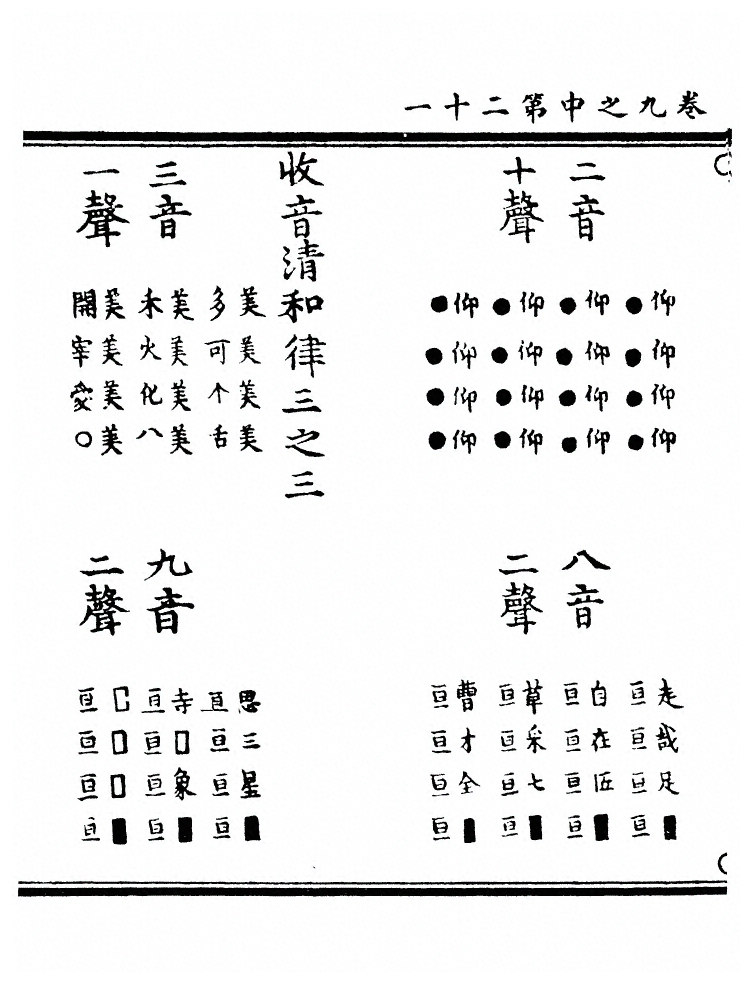 卷九之中第二十一
二音
十聲
仰仰仰仰
●●●●
仰仰仰仰
●●●●
仰仰仰仰
●●●●
仰仰仰仰
●●●●
八音
二聲
走哉足■
亘亘亘亘
自在匠■
亘亘亘亘
草采七■
亘亘亘亘
曹才全■
亘亘亘亘
收音清和律三之三
三音
一聲
美美美美
多可个舌
美美美美
禾火化八
美美美美
開宰愛○
九音
二聲
思三星■
亘亘亘亘
寺□象■
亘亘亘亘
□□□■
亘亘亘亘